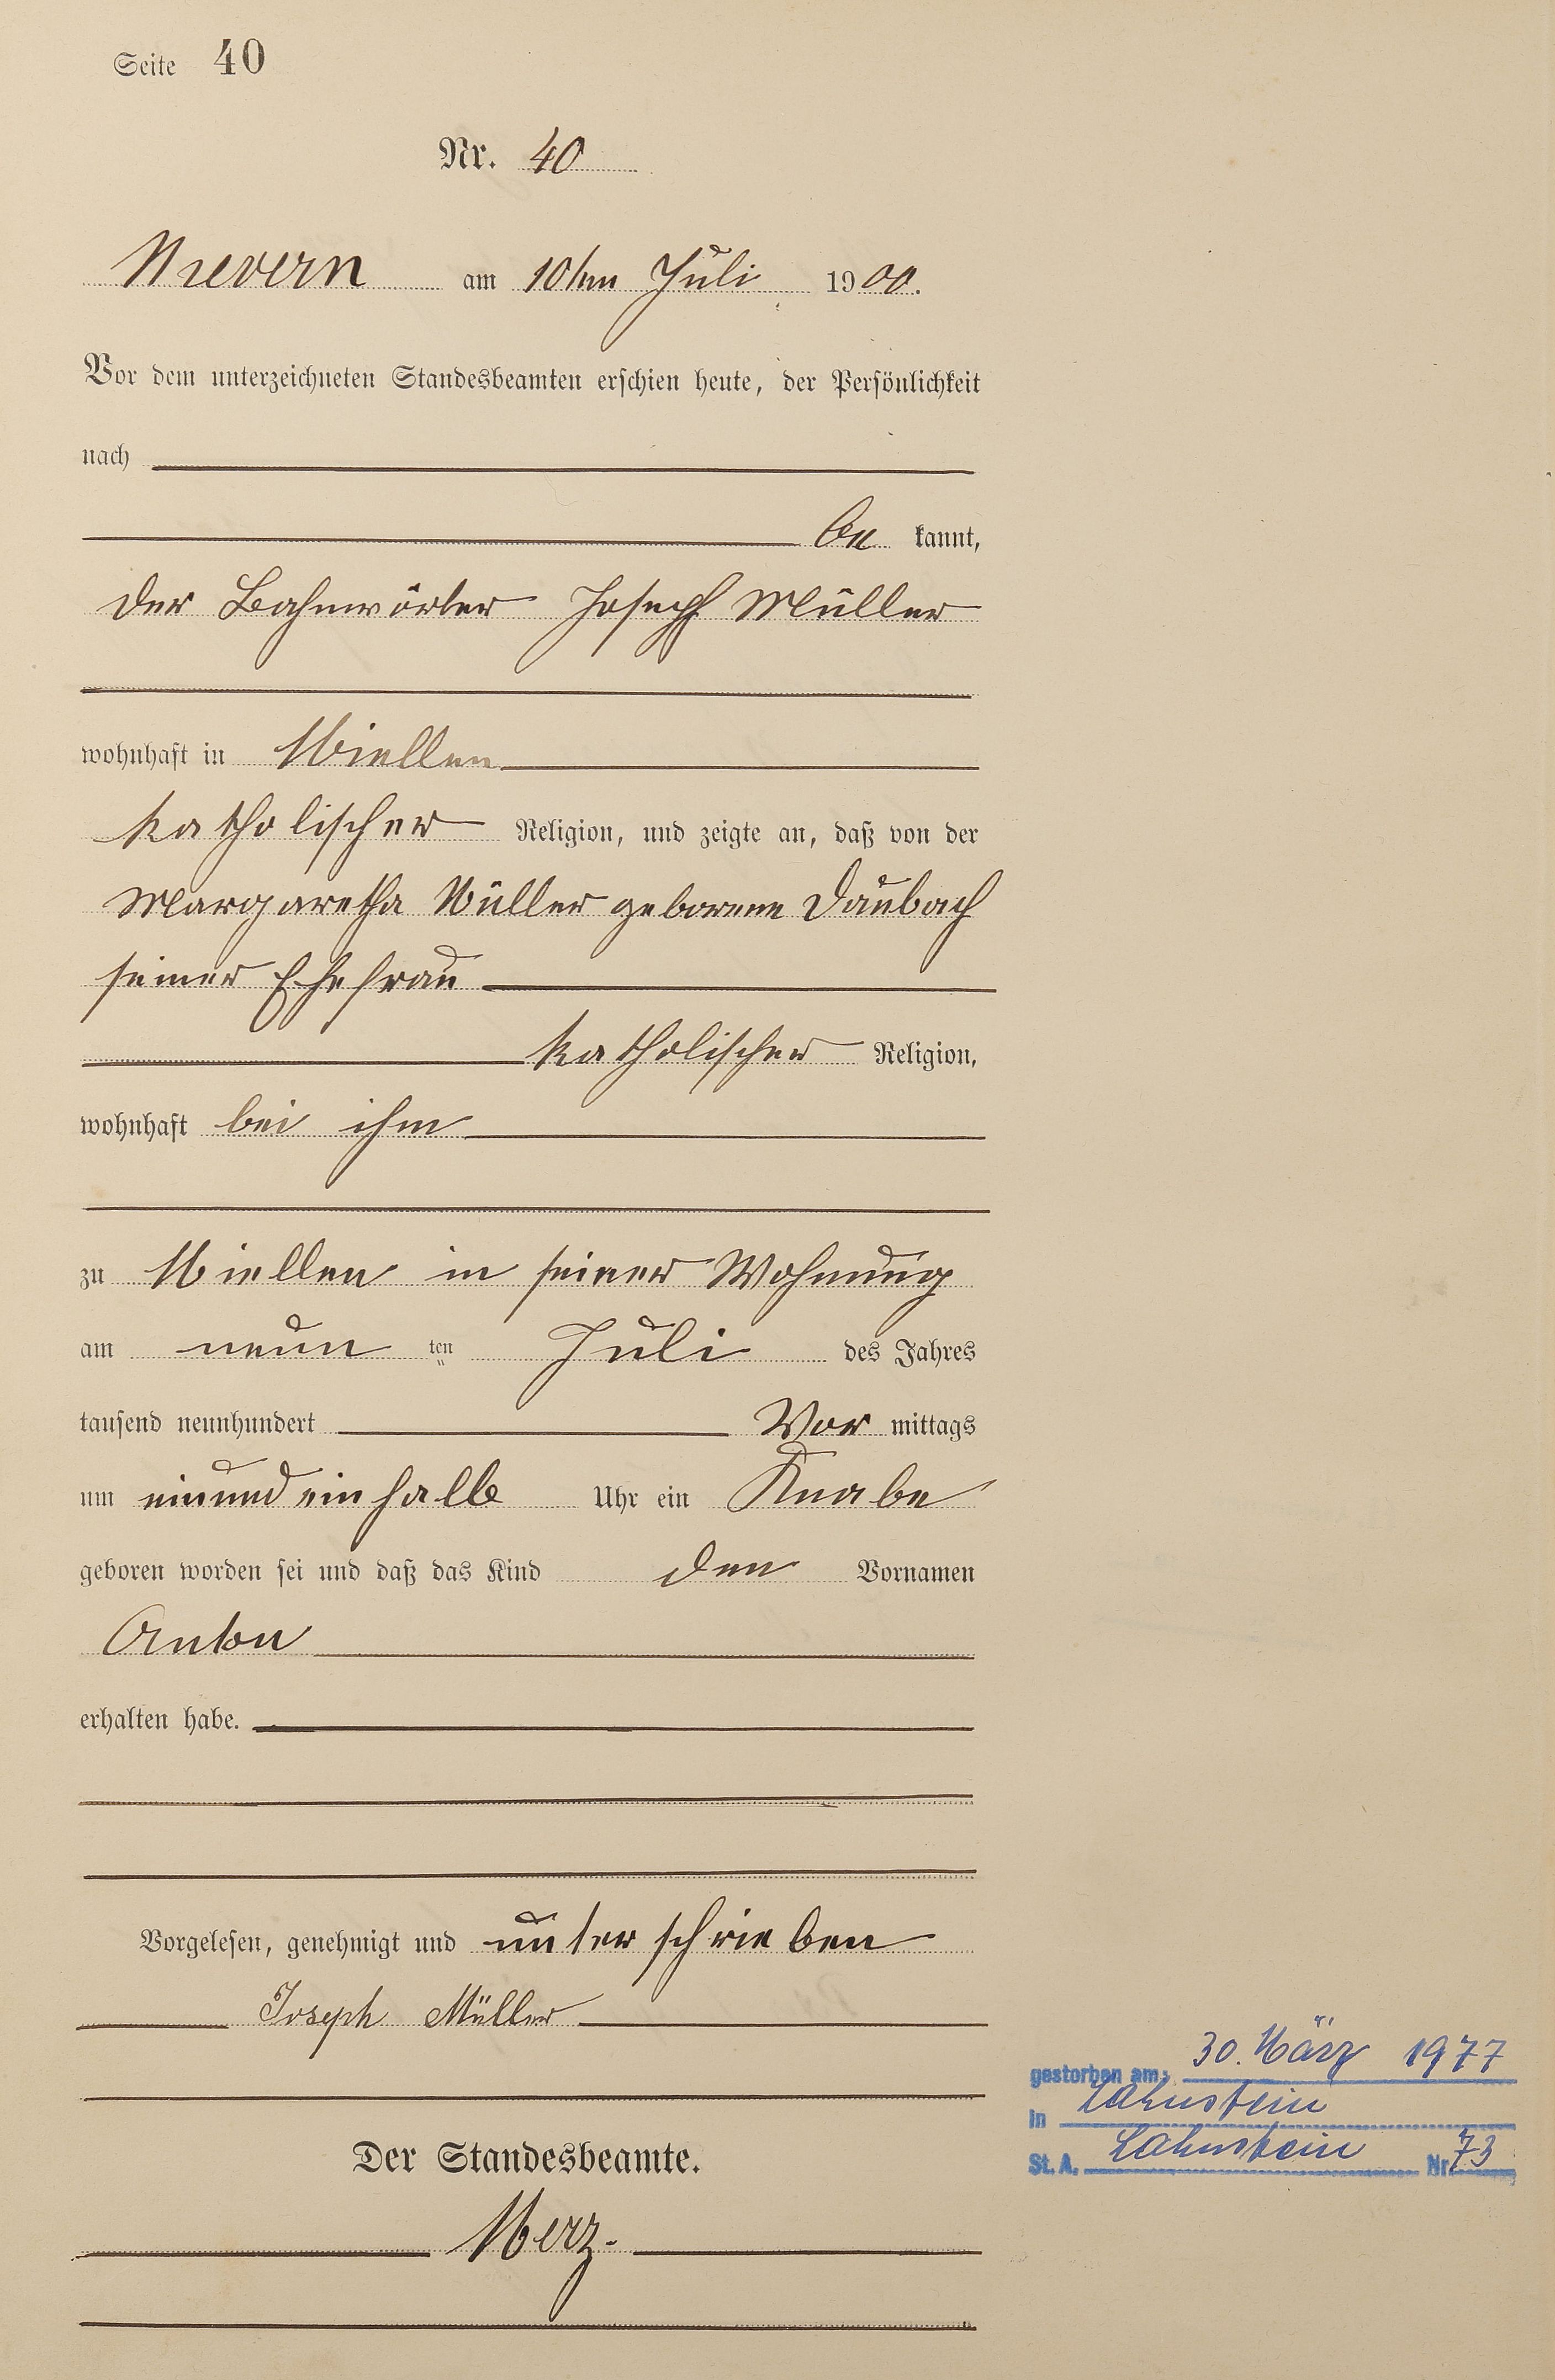 Seite 40
Nr. 40
Nievern am 10ten Juli 1900.
Vor dem unterzeichneten Standesbeamten erschien heute, der Persönlichkeit
nach
be kannt,
der Bahnwärter Joseph Müller
wohnhaft in Miellen
katholischer Religion, und zeigte an, daß von der
Margaretha Müller geborene Daubach
seiner Ehefrau
katholischer Religion,
wohnhaft bei ihm
zu Miellen in seiner Wohnung
am neun ten Juli des Jahres
tausend neunhundert Vor mittags
um einundeinhalb Uhr ein Knabe
geboren worden sei und daß das Kind den Vornamen
Anton
erhalten habe.
Vorgelesen, genehmigt und unterschrieben
Joseph Müller
Der Standesbeamte.
Merz.
gestorben am: 30. März 1977
in Lahnstein
St. A. Lahnstein Nr. 73